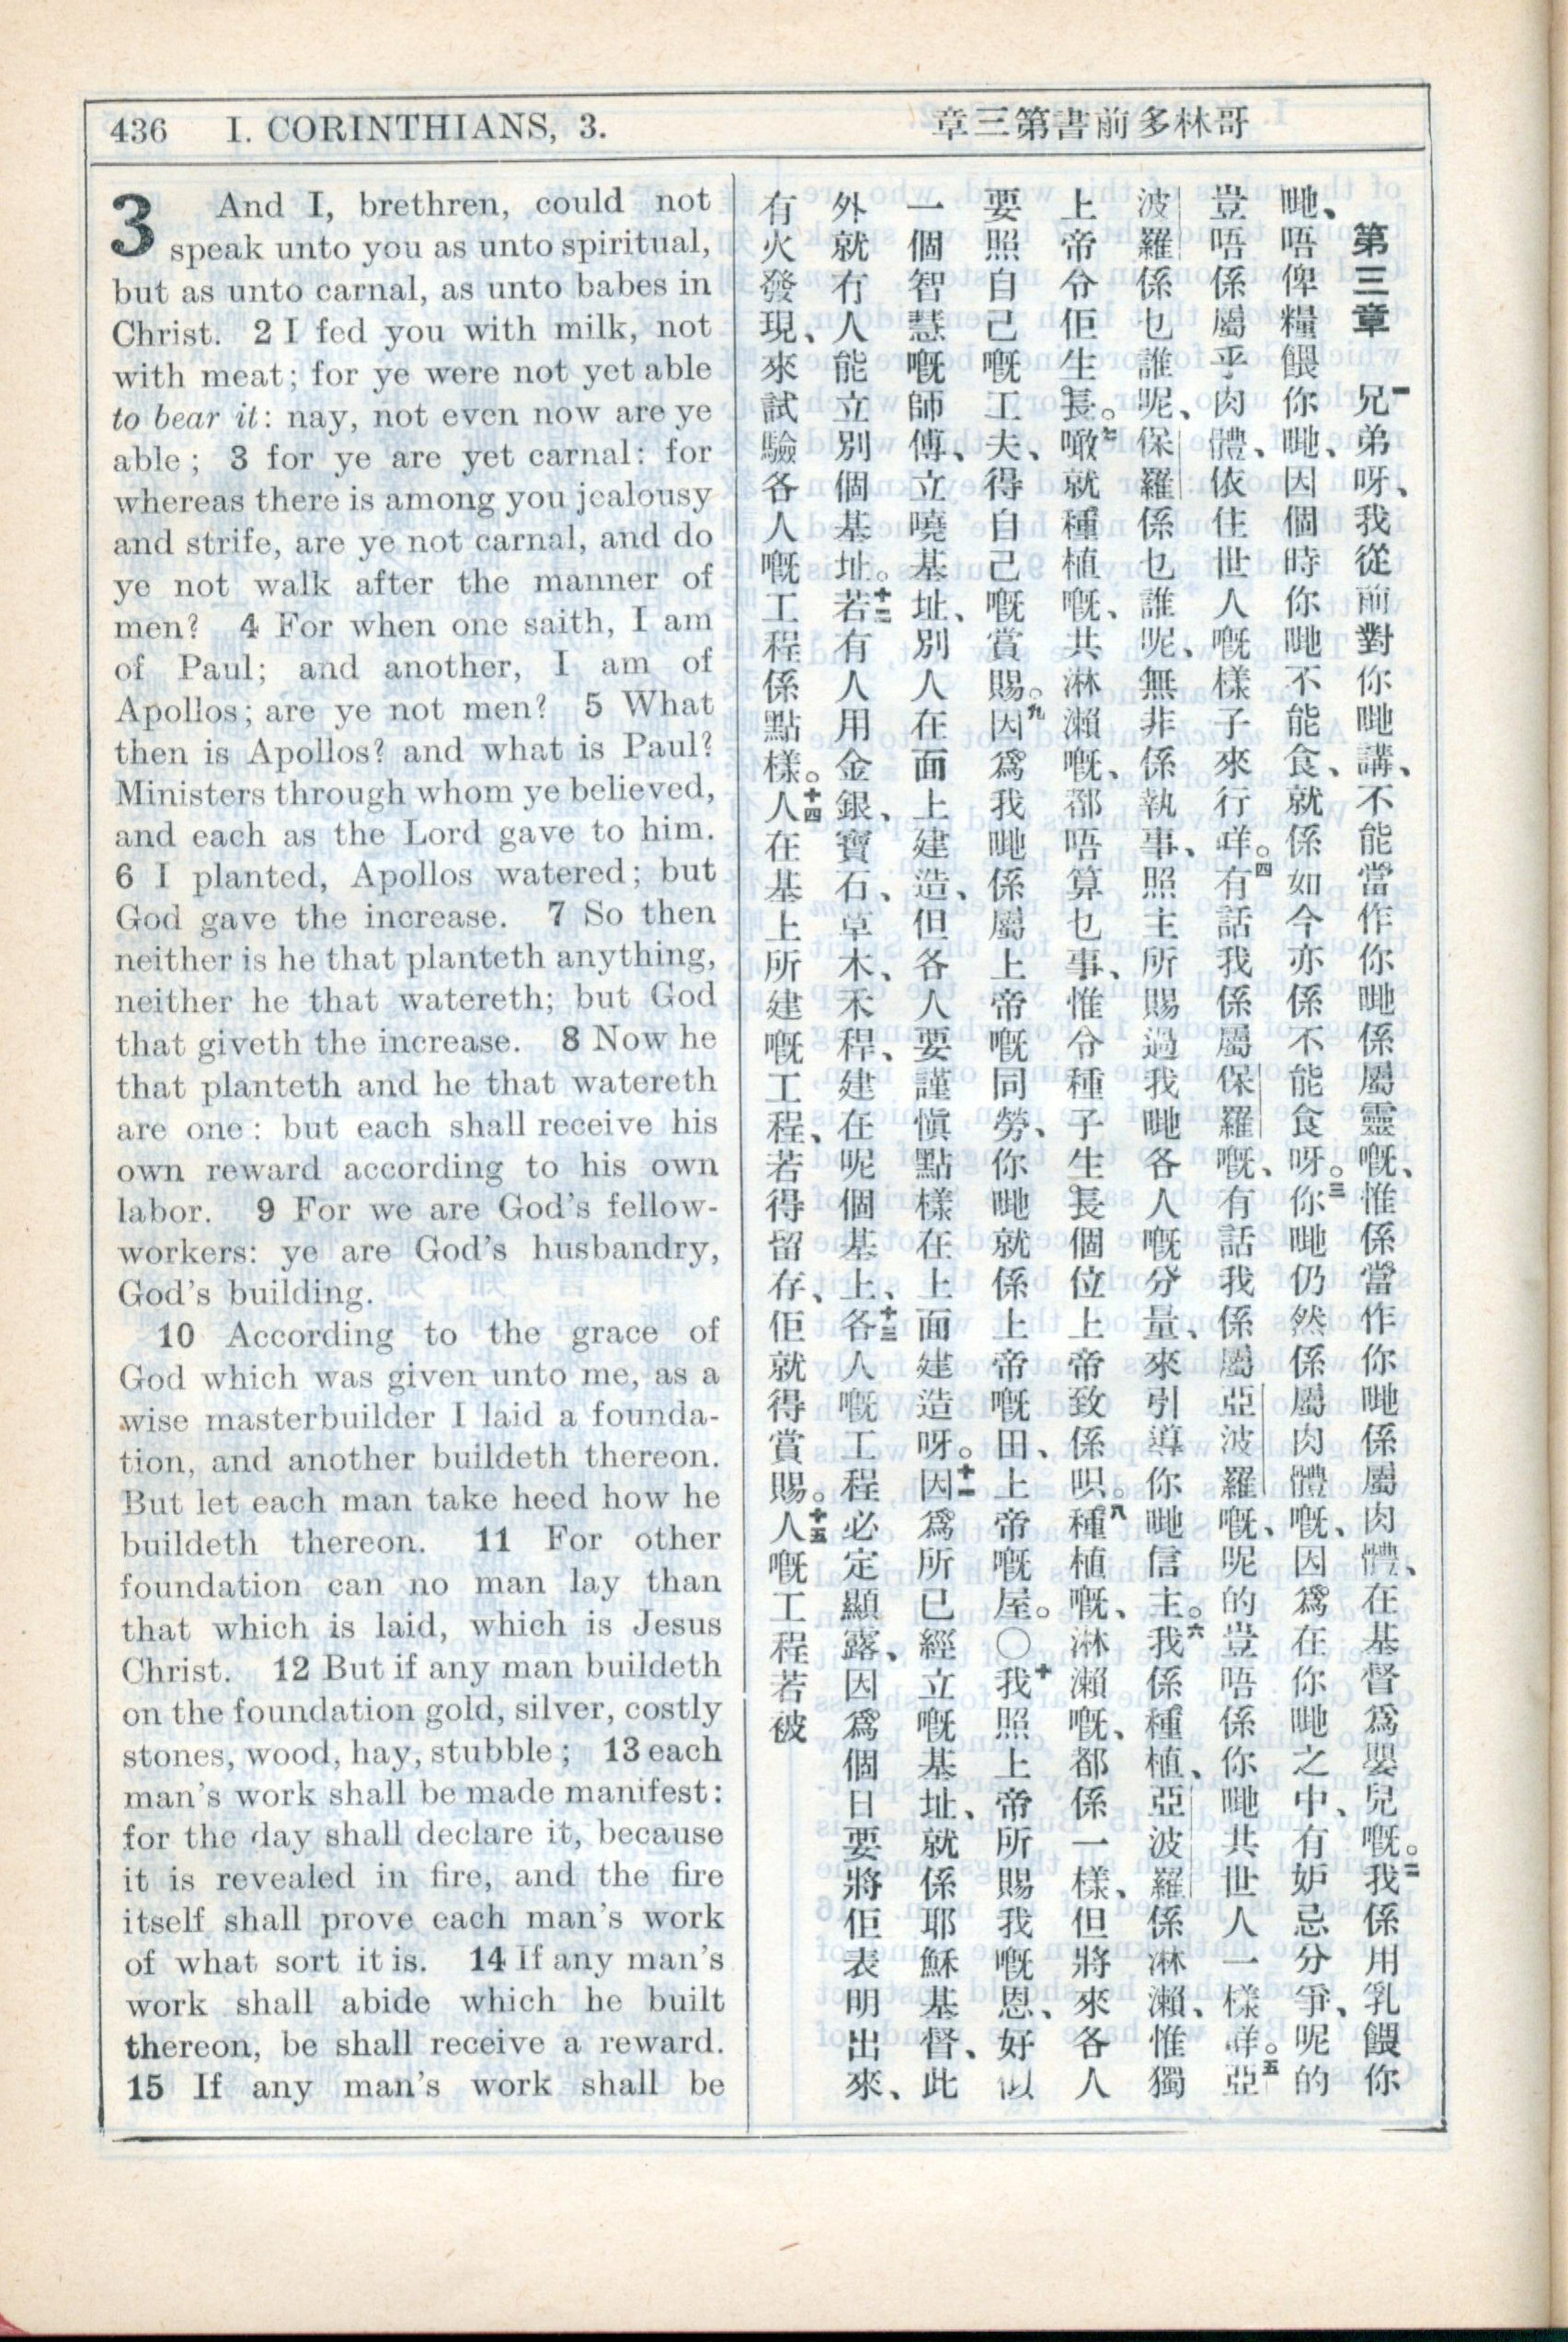 436 I. CORINTHIANS, 3.
章三第書前多林哥
3 And I, brethren, could not
speak unto you as unto spiritual,
but as unto carnal, as unto babes in
Christ. 2 I fed you with milk, not
with meat; for ye were not yet able
to bear it: nay, not even now are ye
able; 3 for ye are yet carnal: for
whereas there is among you jealousy
and strife, are ye not carnal, and do
ye not walk after the manner of
men? 4 For when one saith, I am
of Paul; and another, I am of
Apollos; are ye not men? 5 What
then is Apollos? and what is Paul?
Ministers through whom ye believed,
and each as the Lord gave to him.
6 I planted, Apollos watered; but
God gave the increase. 7 So then
neither is he that planteth anything,
neither he that watereth; but God
that giveth the increase. 8 Now he
that planteth and he that watereth
are one: but each shall receive his
own reward according to his own
labor. 9 For we are God's fellow-
workers: ye are God's husbandry,
God's building.
10 According to the grace of
God which was given unto me, as a
wise masterbuilder I laid a founda-
tion, and another buildeth thereon.
But let each man take heed how he
buildeth thereon. 11 For other
foundation can no man lay than
that which is laid, which is Jesus
Christ. 12 But if any man buildeth
on the foundation gold, silver, costly
stones, wood, hay, stubble; 13 each
man's work shall be made manifest:
for the day shall declare it, because
it is revealed in fire, and the fire
itself shall prove each man's work
of what sort it is. 14 If any man's
work shall abide which he built
thereon, be shall receive a reward.
15 If any man's work shall be
第三章 一兄弟呀、我從前對你哋講、不能當作你哋係屬靈嘅、惟係當作你哋係屬肉體、在基督爲嬰兒嘅。二我係用乳餵你
哋、唔俾糧餵你哋、因個時你哋不能食、就係如今亦係不能食呀。三你哋仍然係屬肉體嘅、因爲在你哋之中、有妒忌分爭、呢的
豈唔係屬乎肉體、依住世人嘅樣子來行咩。四有話我係屬保羅嘅、有話我係屬亞波羅嘅、呢的豈唔係你哋共世人一樣咩。五亞
波羅係乜誰呢、保羅係乜誰呢、無非係執事、照主所賜過我哋各人嘅分量、來引導你哋信主。六我係種植、亞波羅係淋瀨、惟獨
上帝令佢生長。七噉就種植嘅、共淋瀨嘅、都唔算乜事、惟令種子生長個位上帝致係呮。八種植嘅、淋瀨嘅、都係一樣、但將來各人
要照自己嘅工夫、得自己嘅賞賜。九因爲我哋係屬上帝嘅同勞、你哋就係上帝嘅田、上帝嘅屋。〇十我照上帝所賜我嘅恩、好似
一個智慧嘅師傅、立嘵基址、別人在面上建造、但各人要謹愼點樣在上面建造呀。十一因爲所已經立嘅基址、就係耶穌基督、此
外就冇人能立別個基址。十二若有人用金銀、寶石、草木、禾稈、建在呢個基上、十三各人嘅工程必定顯露、因爲個日要將佢表明出來、
有火發現、來試驗各人嘅工程係點樣。十四人在基上所建嘅工程、若得留存、佢就得賞賜。十五人嘅工程若被